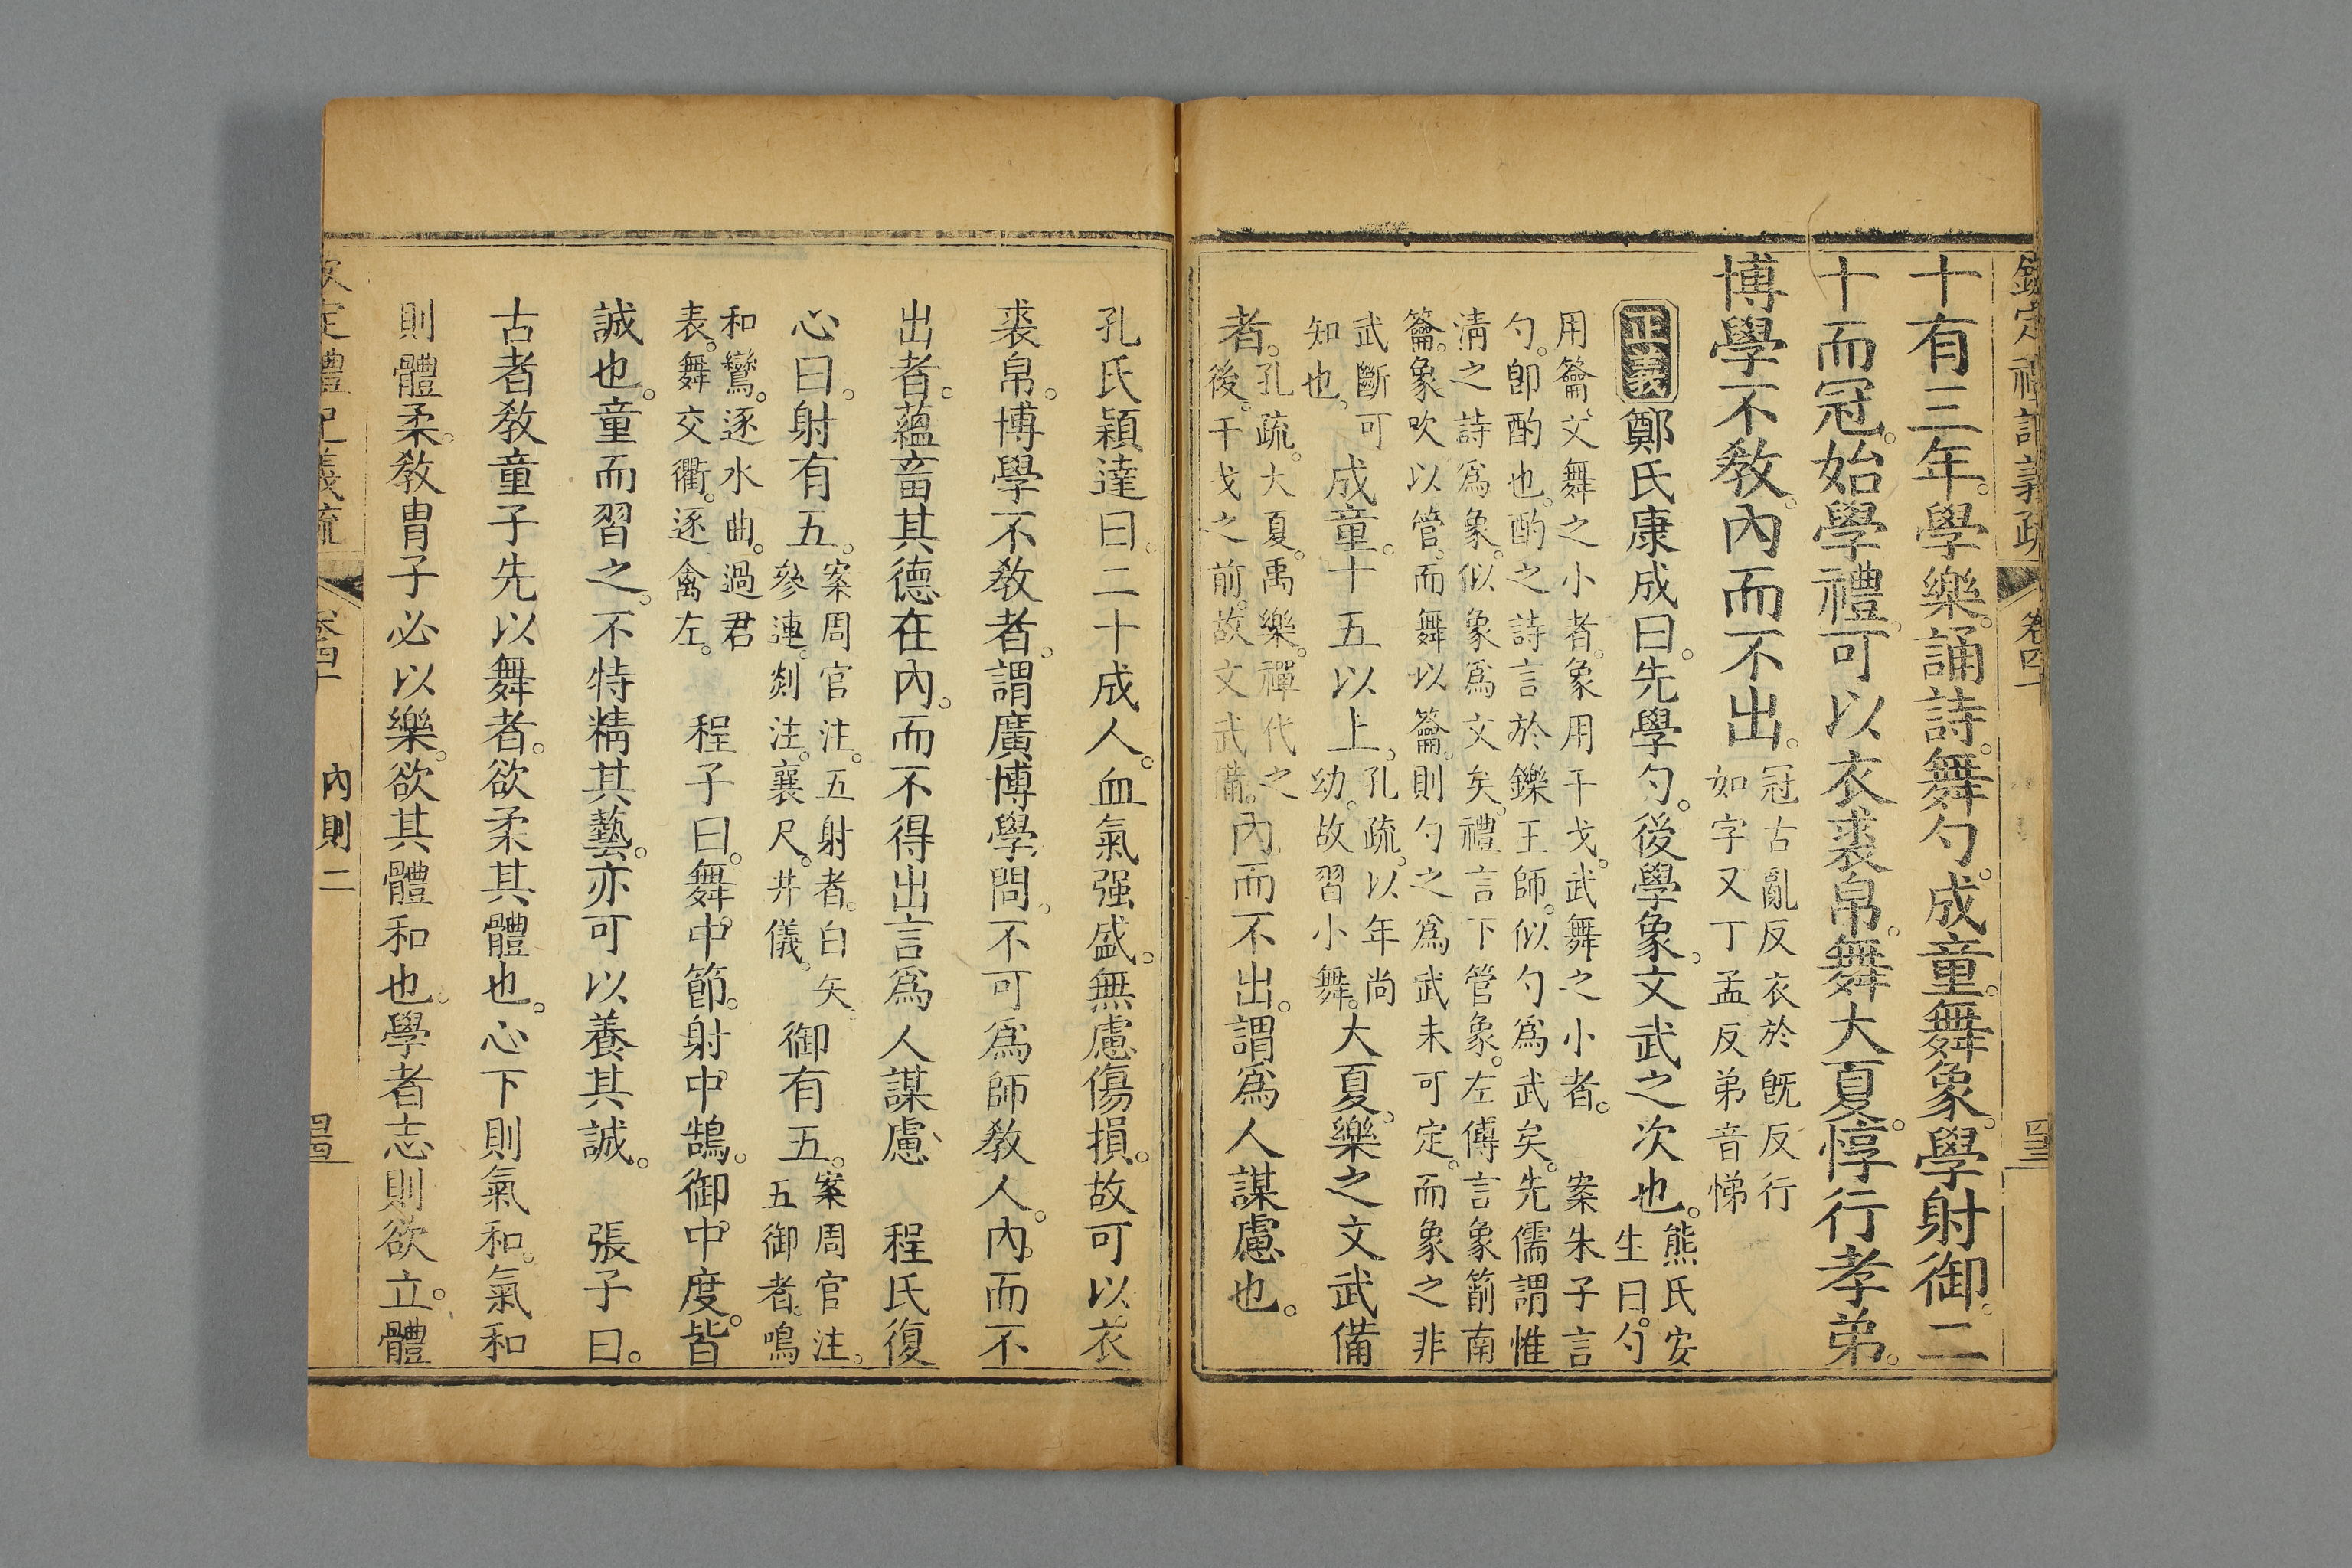 欽定禮記義疏 卷四十
十有三年。學樂。誦詩。舞勺。成童。舞象。學射御。二
十而冠。始學禮。可以衣裘帛。舞大夏。惇行孝弟。
博學不教。內而不出。
冠古亂反衣於既反行
如字又丁孟反弟音悌
正義 鄭氏康成曰。先學勺。後學象。文武之次也。
熊氏安
生曰。勺
用籥。文舞之小者。象用干戈。武舞之小者。 案朱子言
勺。卽酌也。酌之詩言於鑠王師。似勺爲武矣。先儒謂惟
淸之詩爲象。似象爲文矣。禮言下管象。左傳言象箾南
籥。象吹以管。而舞以籥。則勺之爲武未可定。而象之非
武斷可
知也。
成童。十五以上。
孔疏。以年尚
幼。故習小舞。
大夏。樂之文武備
者。
孔疏。大夏。禹樂。禪代之
後。干戈之前。故文武備。
內而不出。謂爲人謀慮也。
孔氏穎達曰。二十成人。血氣强盛。無慮傷損。故可以衣
裘帛。博學不教者。謂廣博學問。不可爲師教人。內而不
出者。蘊畜其德在內。而不得出言爲人謀慮 程氏復
心曰。射有五。
案周官注。五射者。白矢。
參連。剡注。襄尺。井儀。
御有五。
案周官注。
五御者。鳴
和鸞。逐水曲。過君
表。舞交衢。逐禽左。
程子曰。舞中節。射中鵠。御中度。皆
誠也。童而習之。不特精其藝。亦可以養其誠。 張子曰。
古者教童子先以舞者。欲柔其體也。心下則氣和。氣和
則體柔。教胄子必以樂。欲其體和也。學者志則欲立。體
欽定禮記義疏 卷四十 內則二